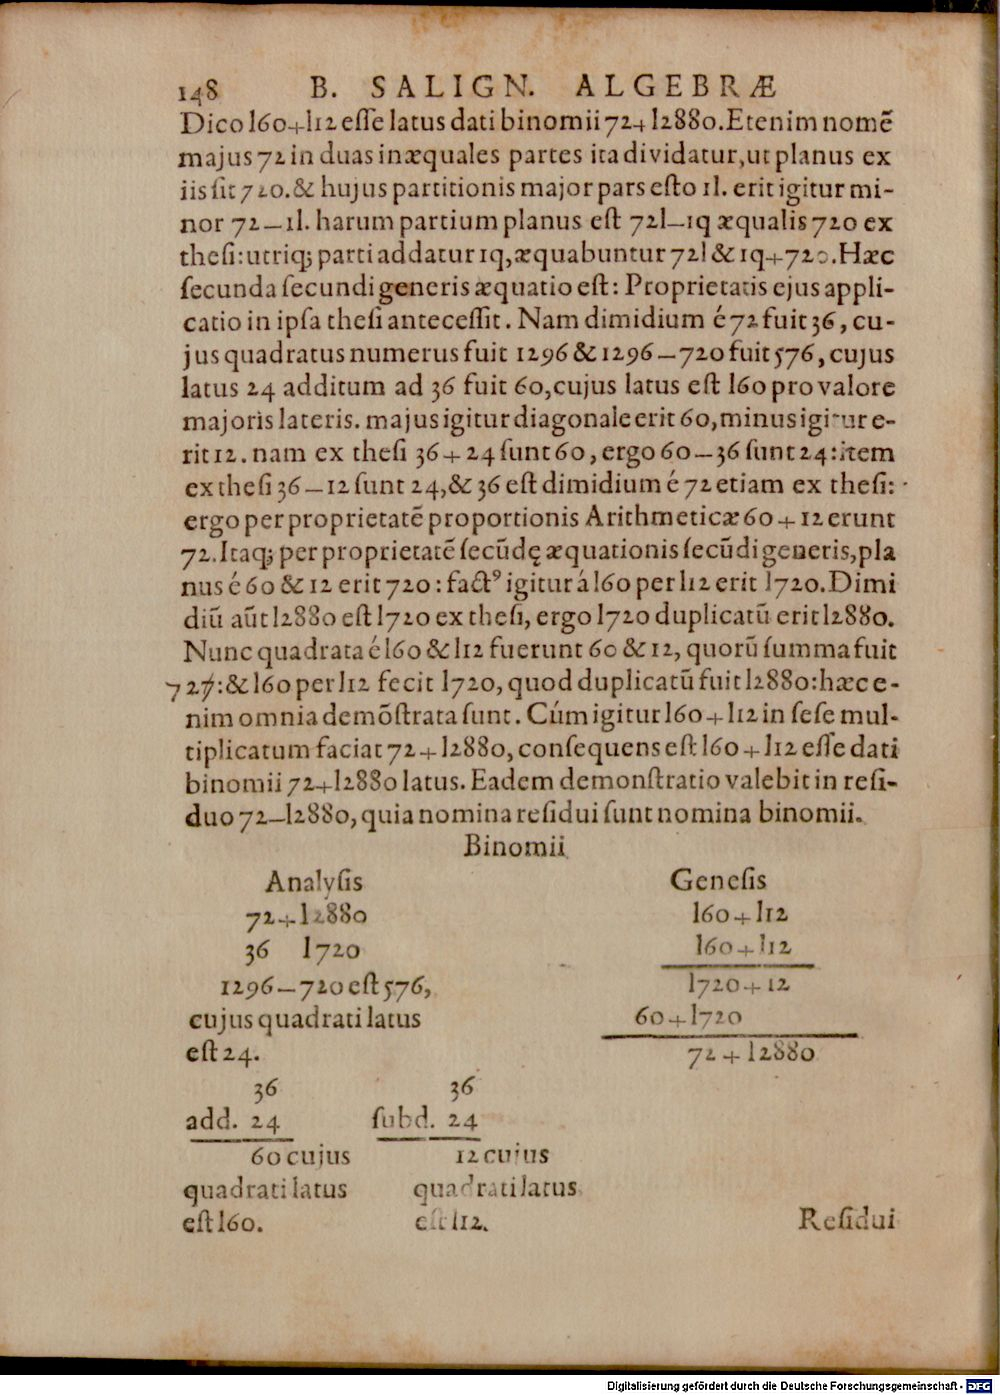 148 B. SALIGN. ALGEBRÆ
Dico l60+l12 eſſe latus dati binomii 72+l2880. Etenim nomē
majus 72 in duas inæquales partes ita dividatur, ut planus ex
iis ſit 720. & hujus partitionis major pars eſto 1l. erit igitur mi-
nor 72—1l. harum partium planus eſt 72l—1q æqualis 720 ex
theſi: utriq; parti addatur 1q, æquabuntur 72l & 1q+720. Hæc
ſecunda ſecundi generis æquatio eſt: Proprietatis ejus appli-
catio in ipſa theſi anteceſſit. Nam dimidium é 72 fuit 36, cu-
jus quadratus numerus fuit 1296 & 1296—720 fuit 576, cujus
latus 24 additum ad 36 fuit 60, cujus latus eſt l60 pro valore
majoris lateris. majus igitur diagonale erit 60, minus igitur e-
rit 12. nam ex theſi 36+24 ſunt 60, ergo 60—36 ſunt 24: item
ex theſi 36—12 ſunt 24, & 36 eſt dimidium é 72 etiam ex theſi:
ergo per proprietatē proportionis Arithmeticæ 60+12 erunt
72. Itaq; per proprietatē ſecūdę æquationis ſecūdi generis, pla
nus é 60 & 12 erit 720: factꝰ igitur á l60 per l12 erit l720. Dimi
diū aūt l2880 eſt l720 ex theſi, ergo l720 duplicatū erit l2880.
Nunc quadrata é l60 & l12 fuerunt 60 & 12, quorū ſumma fuit
72: & l60 per l12 fecit l720, quod duplicatū fuit l2880: hæc e-
nim omnia demōſtrata ſunt. Cúm igitur l60+l12 in ſeſe mul-
tiplicatum faciat 72+l2880, conſequens eſt l60+l12 eſſe dati
binomii 72+l2880 latus. Eadem demonſtratio valebit in reſi-
duo 72—l2880, quia nomina reſidui ſunt nomina binomii.
Binomii
Analyſis
72+l2880
36 l720
1296—720 eſt 576,
cujus quadrati latus
eſt 24.
36
add. 24
60 cujus
quadrati latus
eſt l60.
36
ſubd. 24
12 cujus
quadrati latus
eſt l12.
Geneſis
l60+l12
l60+l12
l720+12
60+l720
72+l2880
Reſidui
Digitalisierung gefördert durch die Deutsche Forschungsgemeinschaft - DFG